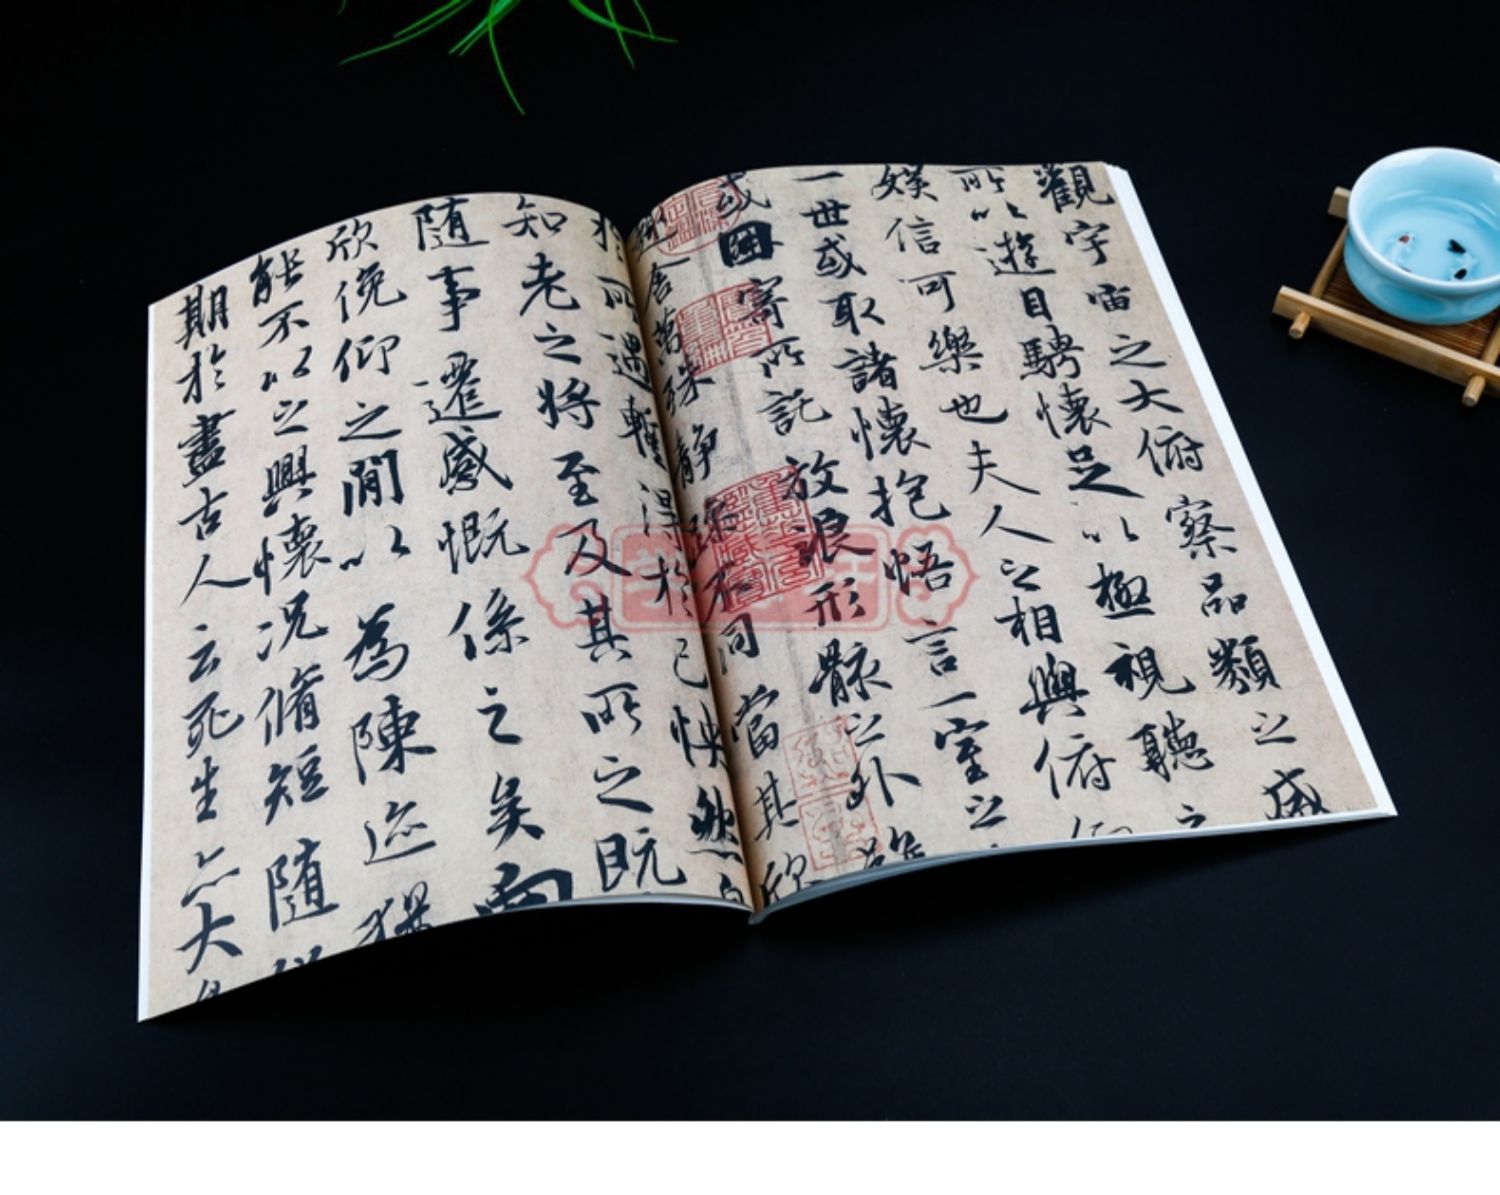 觀宇宙之大俯察品類之盛
所以遊目騁懷足以極視聽之
娛信可樂也夫人之相與俯仰
一世或取諸懷抱悟言一室之
或因寄所託放浪形骸之外雖
趣舍萬殊靜躁不同當其欣
於所遇暫得於己怏然自
知老之將至及其所之既
隨事遷感慨係之矣向
欣俛仰之閒以為陳迹猶
能不以之興懷況脩短隨
期於盡古人云死生亦大